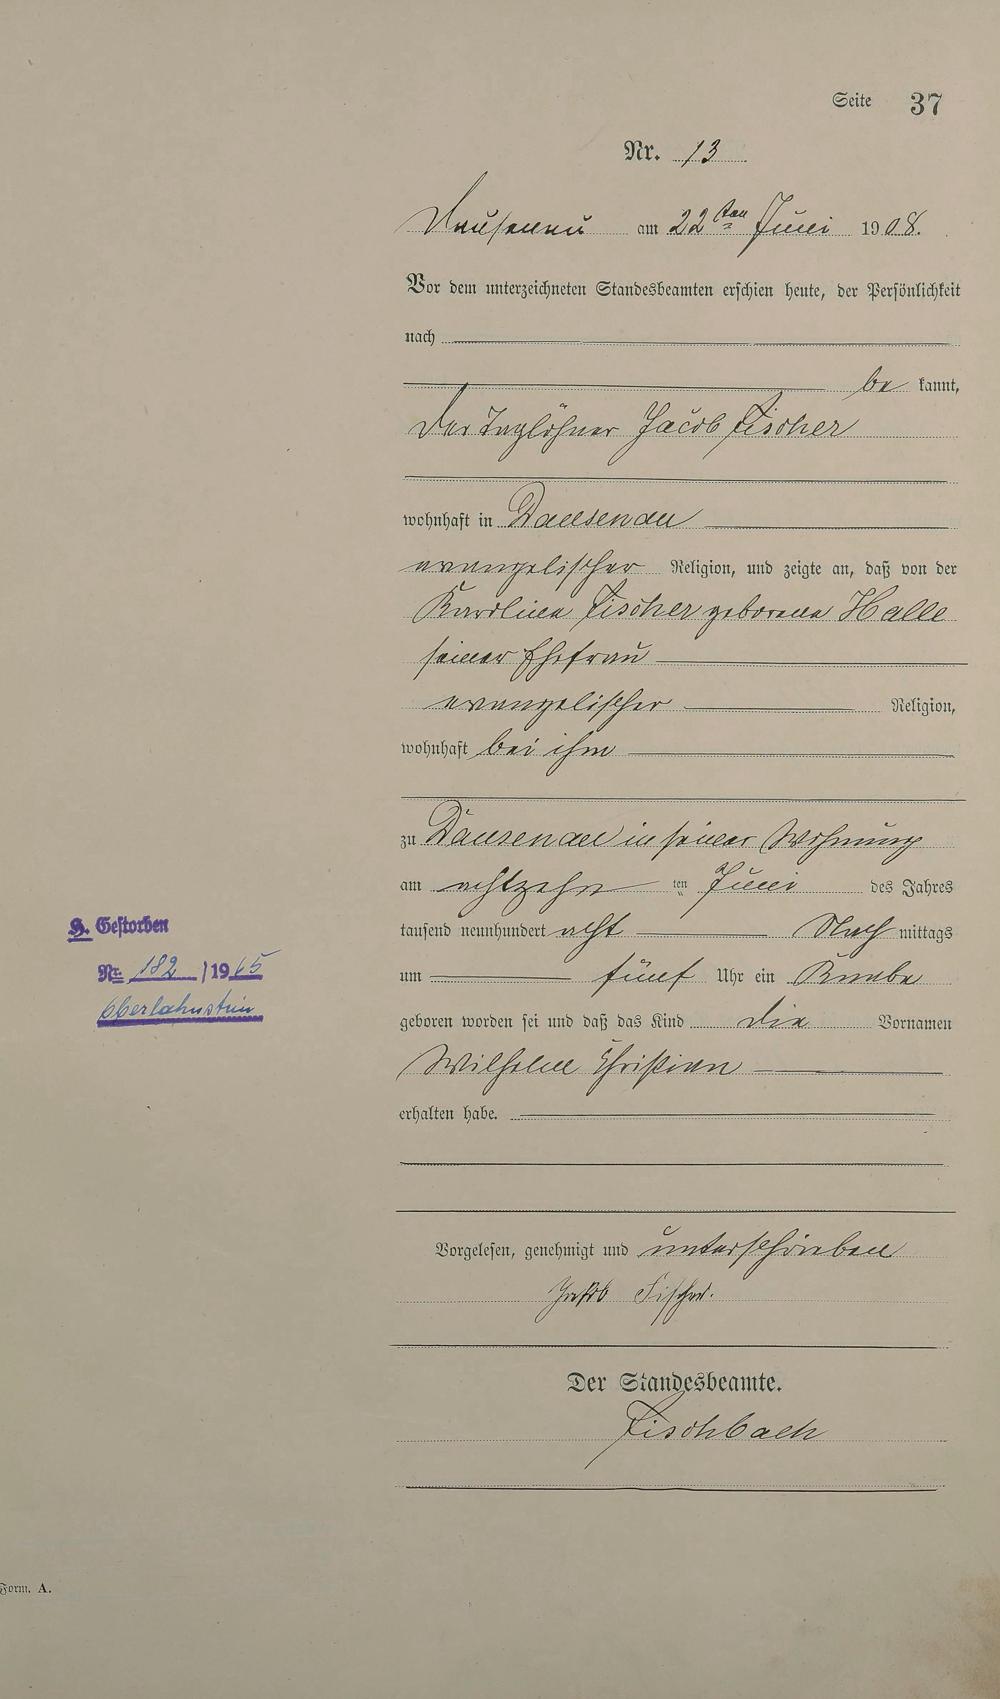 Seite 37
Nr. 13
Dausenau am 22ten Juni 1908.
Vor dem unterzeichneten Standesbeamten erschien heute, der Persönlichkeit
nach
be kannt,
der Taglöhner Jacob Fischer
wohnhaft in Dausenau
evangelischer Religion, und zeigte an, daß von der
Karoline Fischer geborene Halle
seiner Ehefrau
evangelischer Religion,
wohnhaft bei ihm
zu Dausenau in seiner Wohnung
am achtzehn ten Juni des Jahres
tausend neunhundert acht Nach mittags
um fünf Uhr ein Knabe
geboren worden sei und daß das Kind die Vornamen
Wilhelm Christian
erhalten habe.
Vorgelesen, genehmigt und unterschrieben
Jakob Fischer.
Der Standesbeamte.
Fischbach
H. Gestorben
Nr. 182 /1965
Oberlahnstein
Form. A.